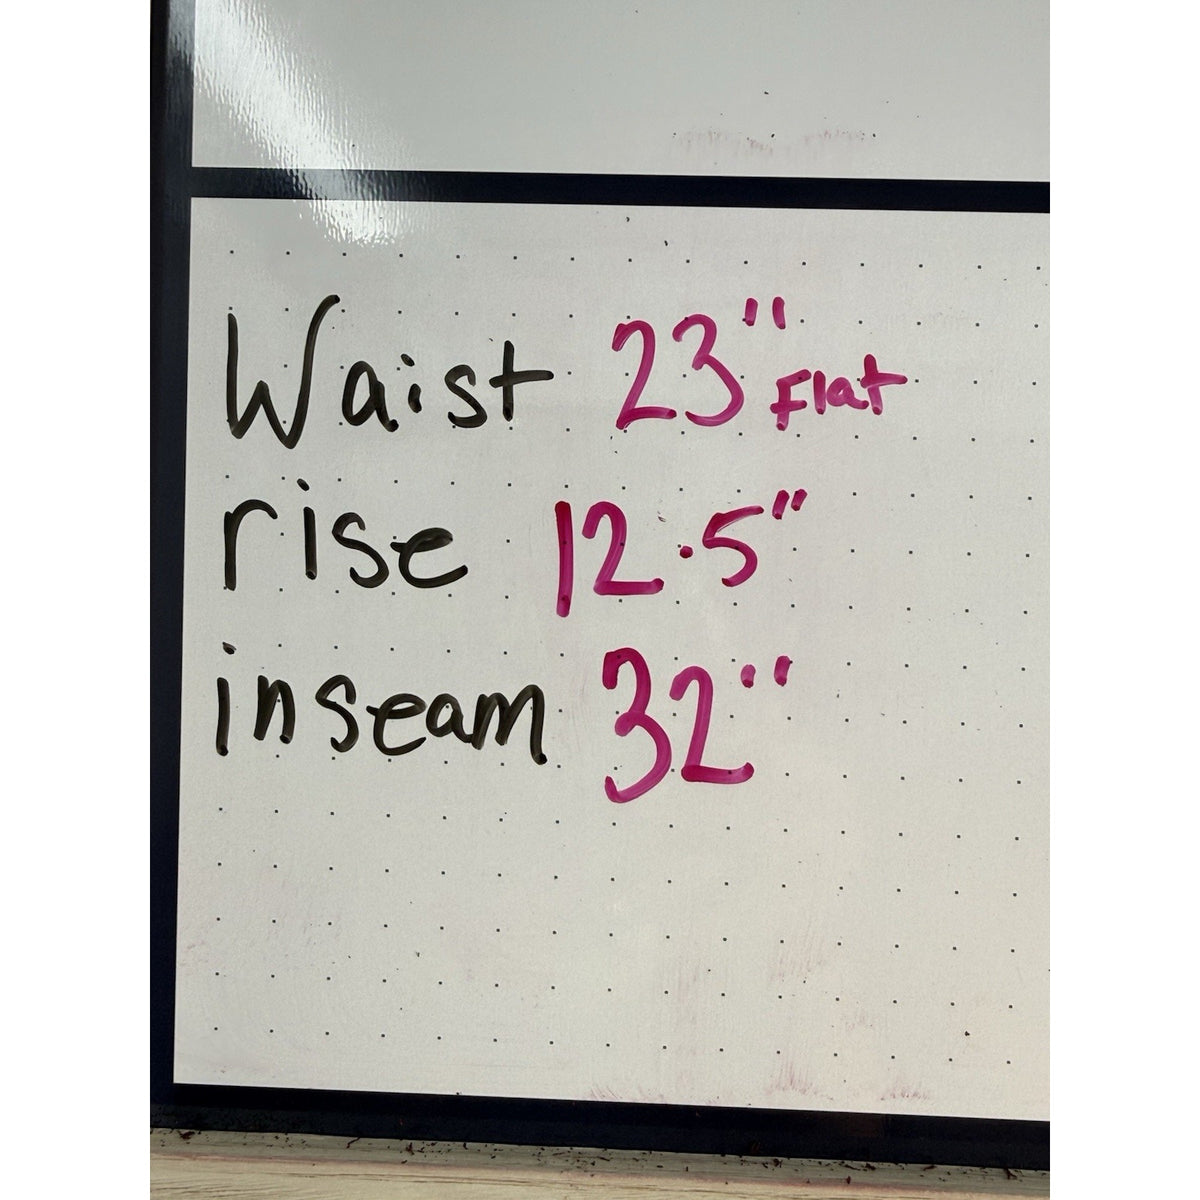 Waist 23" flat
rise 12.5"
inseam 32"